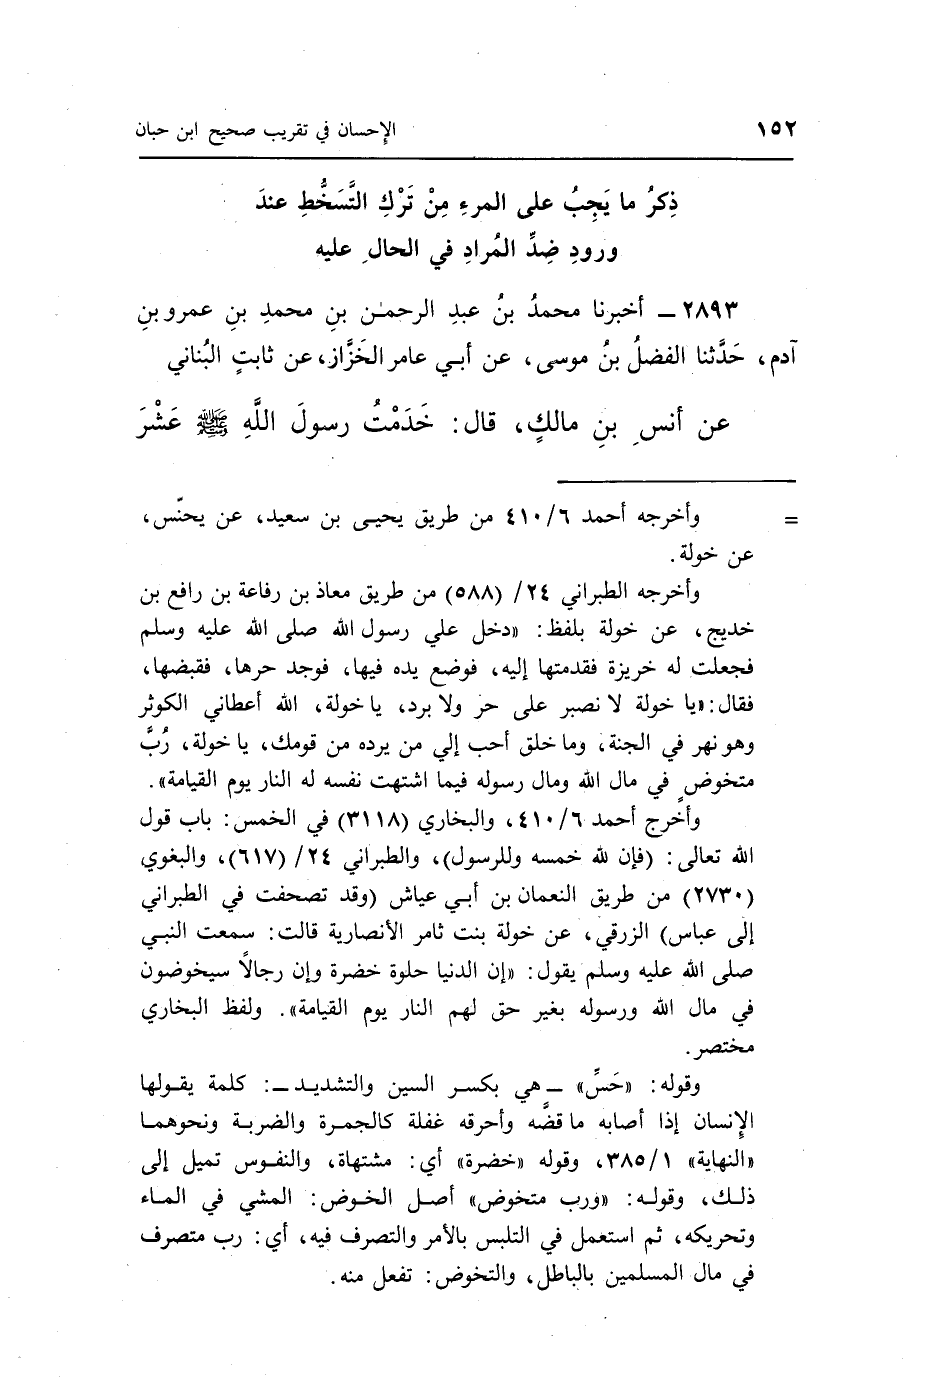 ١٥٢ الإحسان في تقريب صحيح ابن حبان
ذِكرُ ما يَجِبُ على المرءِ مِنْ تَرْكِ التَّسَخُّطِ عندَ
ورودِ ضِدِّ المُرادِ في الحالِ عليه
٢٨٩٣ ـ أخبرنا محمدُ بنُ عبدِ الرحمـٰن بنِ محمدِ بنِ عمرو بنِ
آدم، حَدَّثنا الفضلُ بنُ موسى، عن أبي عامر الخَزَّاز، عن ثابتٍ البُناني
عن أنسِ بنِ مالكٍ، قال: خَدَمْتُ رسولَ اللَّهِ ﷺ عَشْرَ
= وأخرجه أحمد ٤١٠/٦ من طريق يحيى بن سعيد، عن يحنّس،
عن خولة.
وأخرجه الطبراني ٢٤/ (٥٨٨) من طريق معاذ بن رفاعة بن رافع بن
خديج، عن خولة بلفظ: «دخل علي رسول الله صلى الله عليه وسلم
فجعلت له خريزة فقدمتها إليه، فوضع يده فيها، فوجد حرها، فقبضها،
فقال: «يا خولة لا نصبر على حر ولا برد، يا خولة، الله أعطاني الكوثر
وهو نهر في الجنة، وما خلق أحب إلي من يرده من قومك، يا خولة، رُبَّ
متخوضٍ في مال الله ومال رسوله فيما اشتهت نفسه له النار يوم القيامة».
وأخرج أحمد ٤١٠/٦، والبخاري (٣١١٨) في الخمس: باب قول
الله تعالى: (فإن لله خمسه وللرسول)، والطبراني ٢٤/ (٦١٧)، والبغوي
(٢٧٣٠) من طريق النعمان بن أبي عياش (وقد تصحفت في الطبراني
إلى عباس) الزرقي، عن خولة بنت ثامر الأنصارية قالت: سمعت النبي
صلى الله عليه وسلم يقول: «إن الدنيا حلوة خضرة وإن رجالاً سيخوضون
في مال الله ورسوله بغير حق لهم النار يوم القيامة». ولفظ البخاري
مختصر.
وقوله: «حَسِّ» ـ هي بكسر السين والتشديد ـ: كلمة يقولها
الإنسان إذا أصابه ما قضَّه وأحرقه غفلة كالجمرة والضربة ونحوهما
«النهاية» ٣٨٥/١، وقوله «خضرة» أي: مشتهاة، والنفوس تميل إلى
ذلك، وقوله: «ورب متخوض» أصل الخوض: المشي في الماء
وتحريكه، ثم استعمل في التلبس بالأمر والتصرف فيه، أي: رب متصرف
في مال المسلمين بالباطل، والتخوض: تفعل منه.